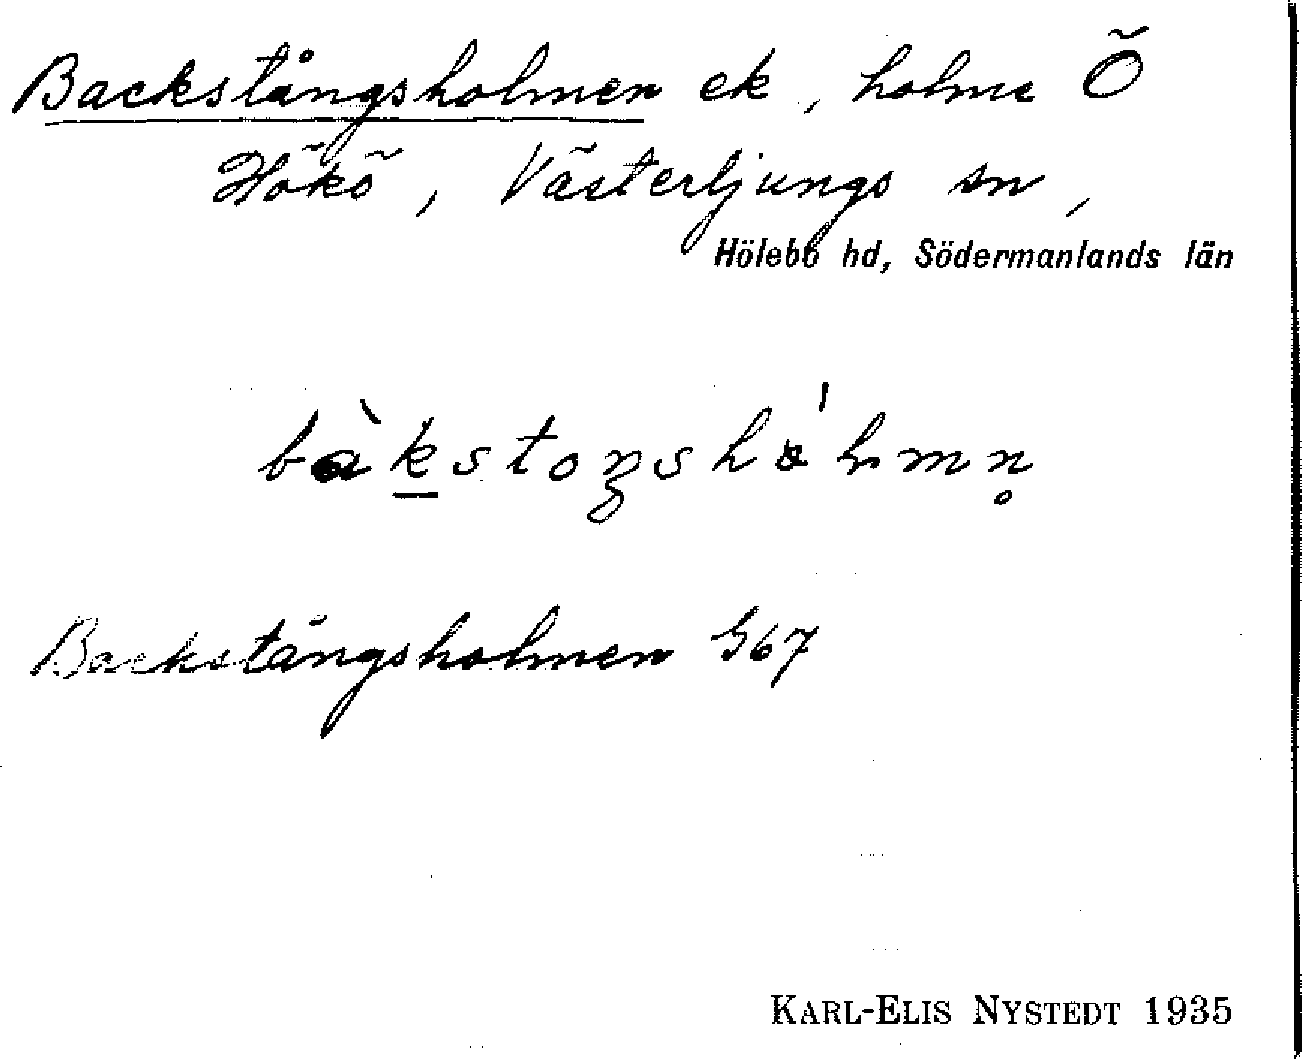 Backstångsholmen ek, holme Ö
Hökö, Västerljungs sn,
Hölebo hd, Södermanlands län
Backstångsholmen G67
KARL-ELIS NYSTEDT 1935